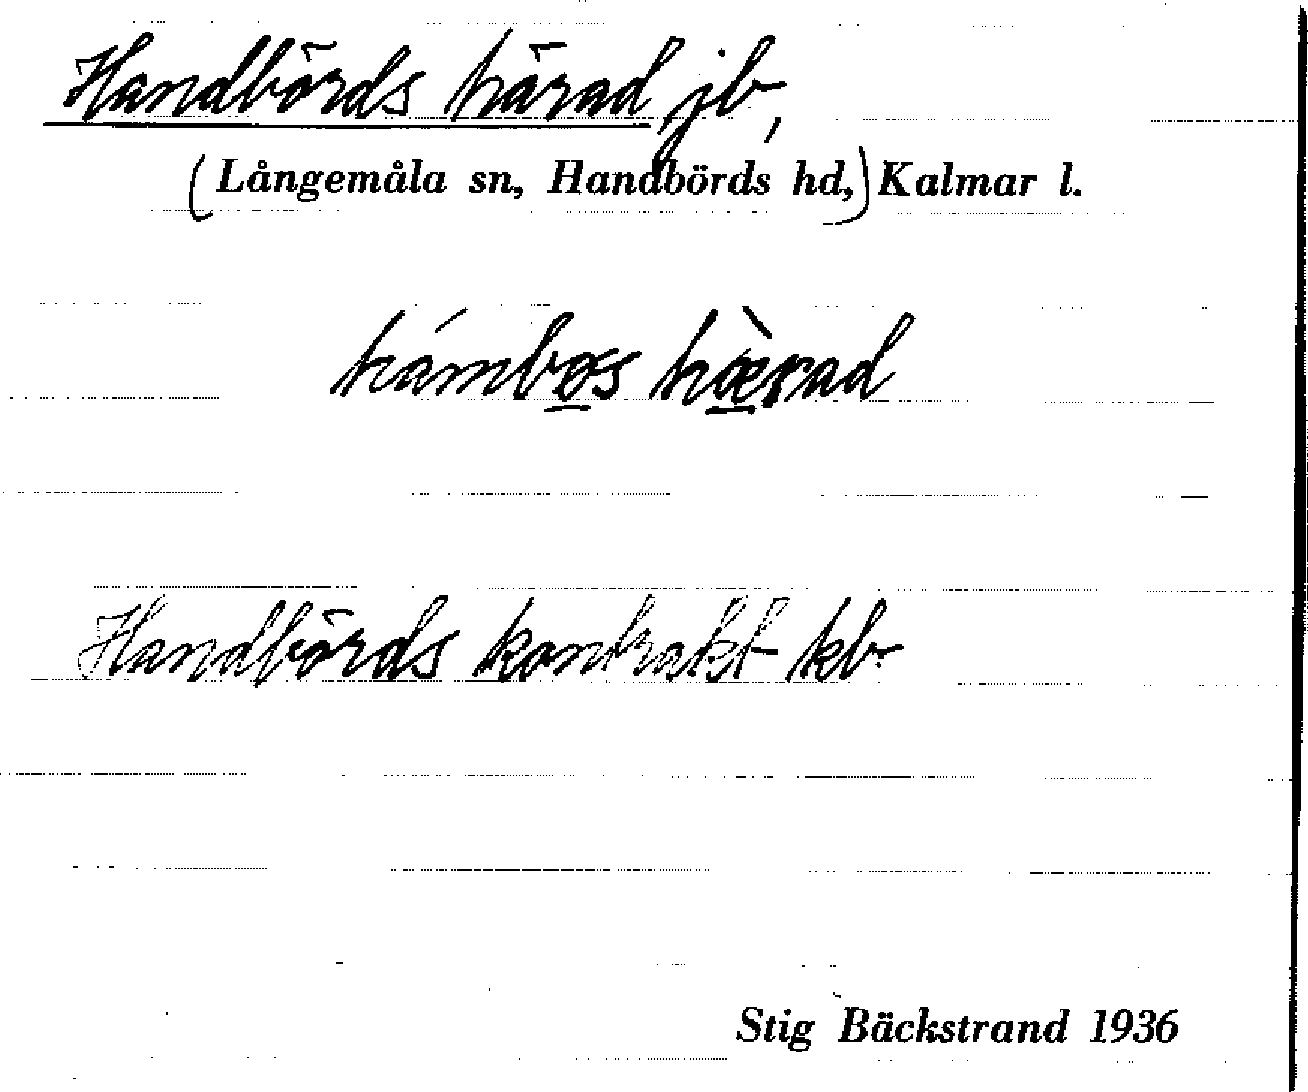 Handbörds härad jb,
(Långemåla sn, Handbörds hd,) Kalmar l.
hámbos hæ̀rad
Handbörds kontrakt kb
Stig Bäckstrand 1936